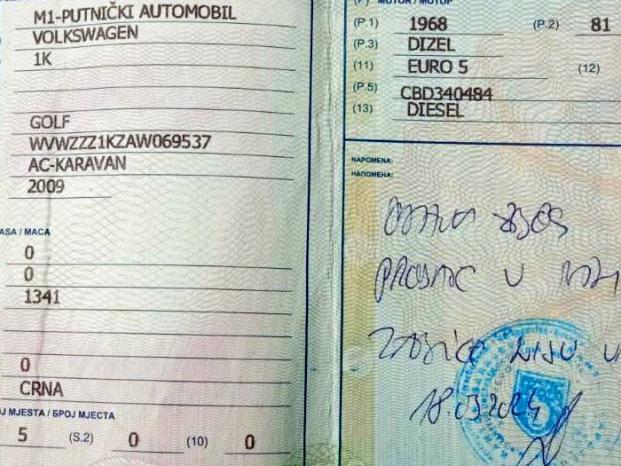 M1-PUTNIČKI AUTOMOBIL
VOLKSWAGEN
1K
GOLF
WVWZZZ1KZAW069537
AC-KARAVAN
2009
ASA / MACA
0
0
1341
0
CRNA
J MJESTA / БРОЈ МЈЕСТА
5 (S.2) 0 (10) 0
MOTOR / МОТОР
(P.1) 1968 (P.2) 81
(P.3) DIZEL
(11) EURO 5 (12)
(P.5) CBD340484
(13) DIESEL
NAPOMENA:
НАПОМЕНА:
U
U
18.03.2024